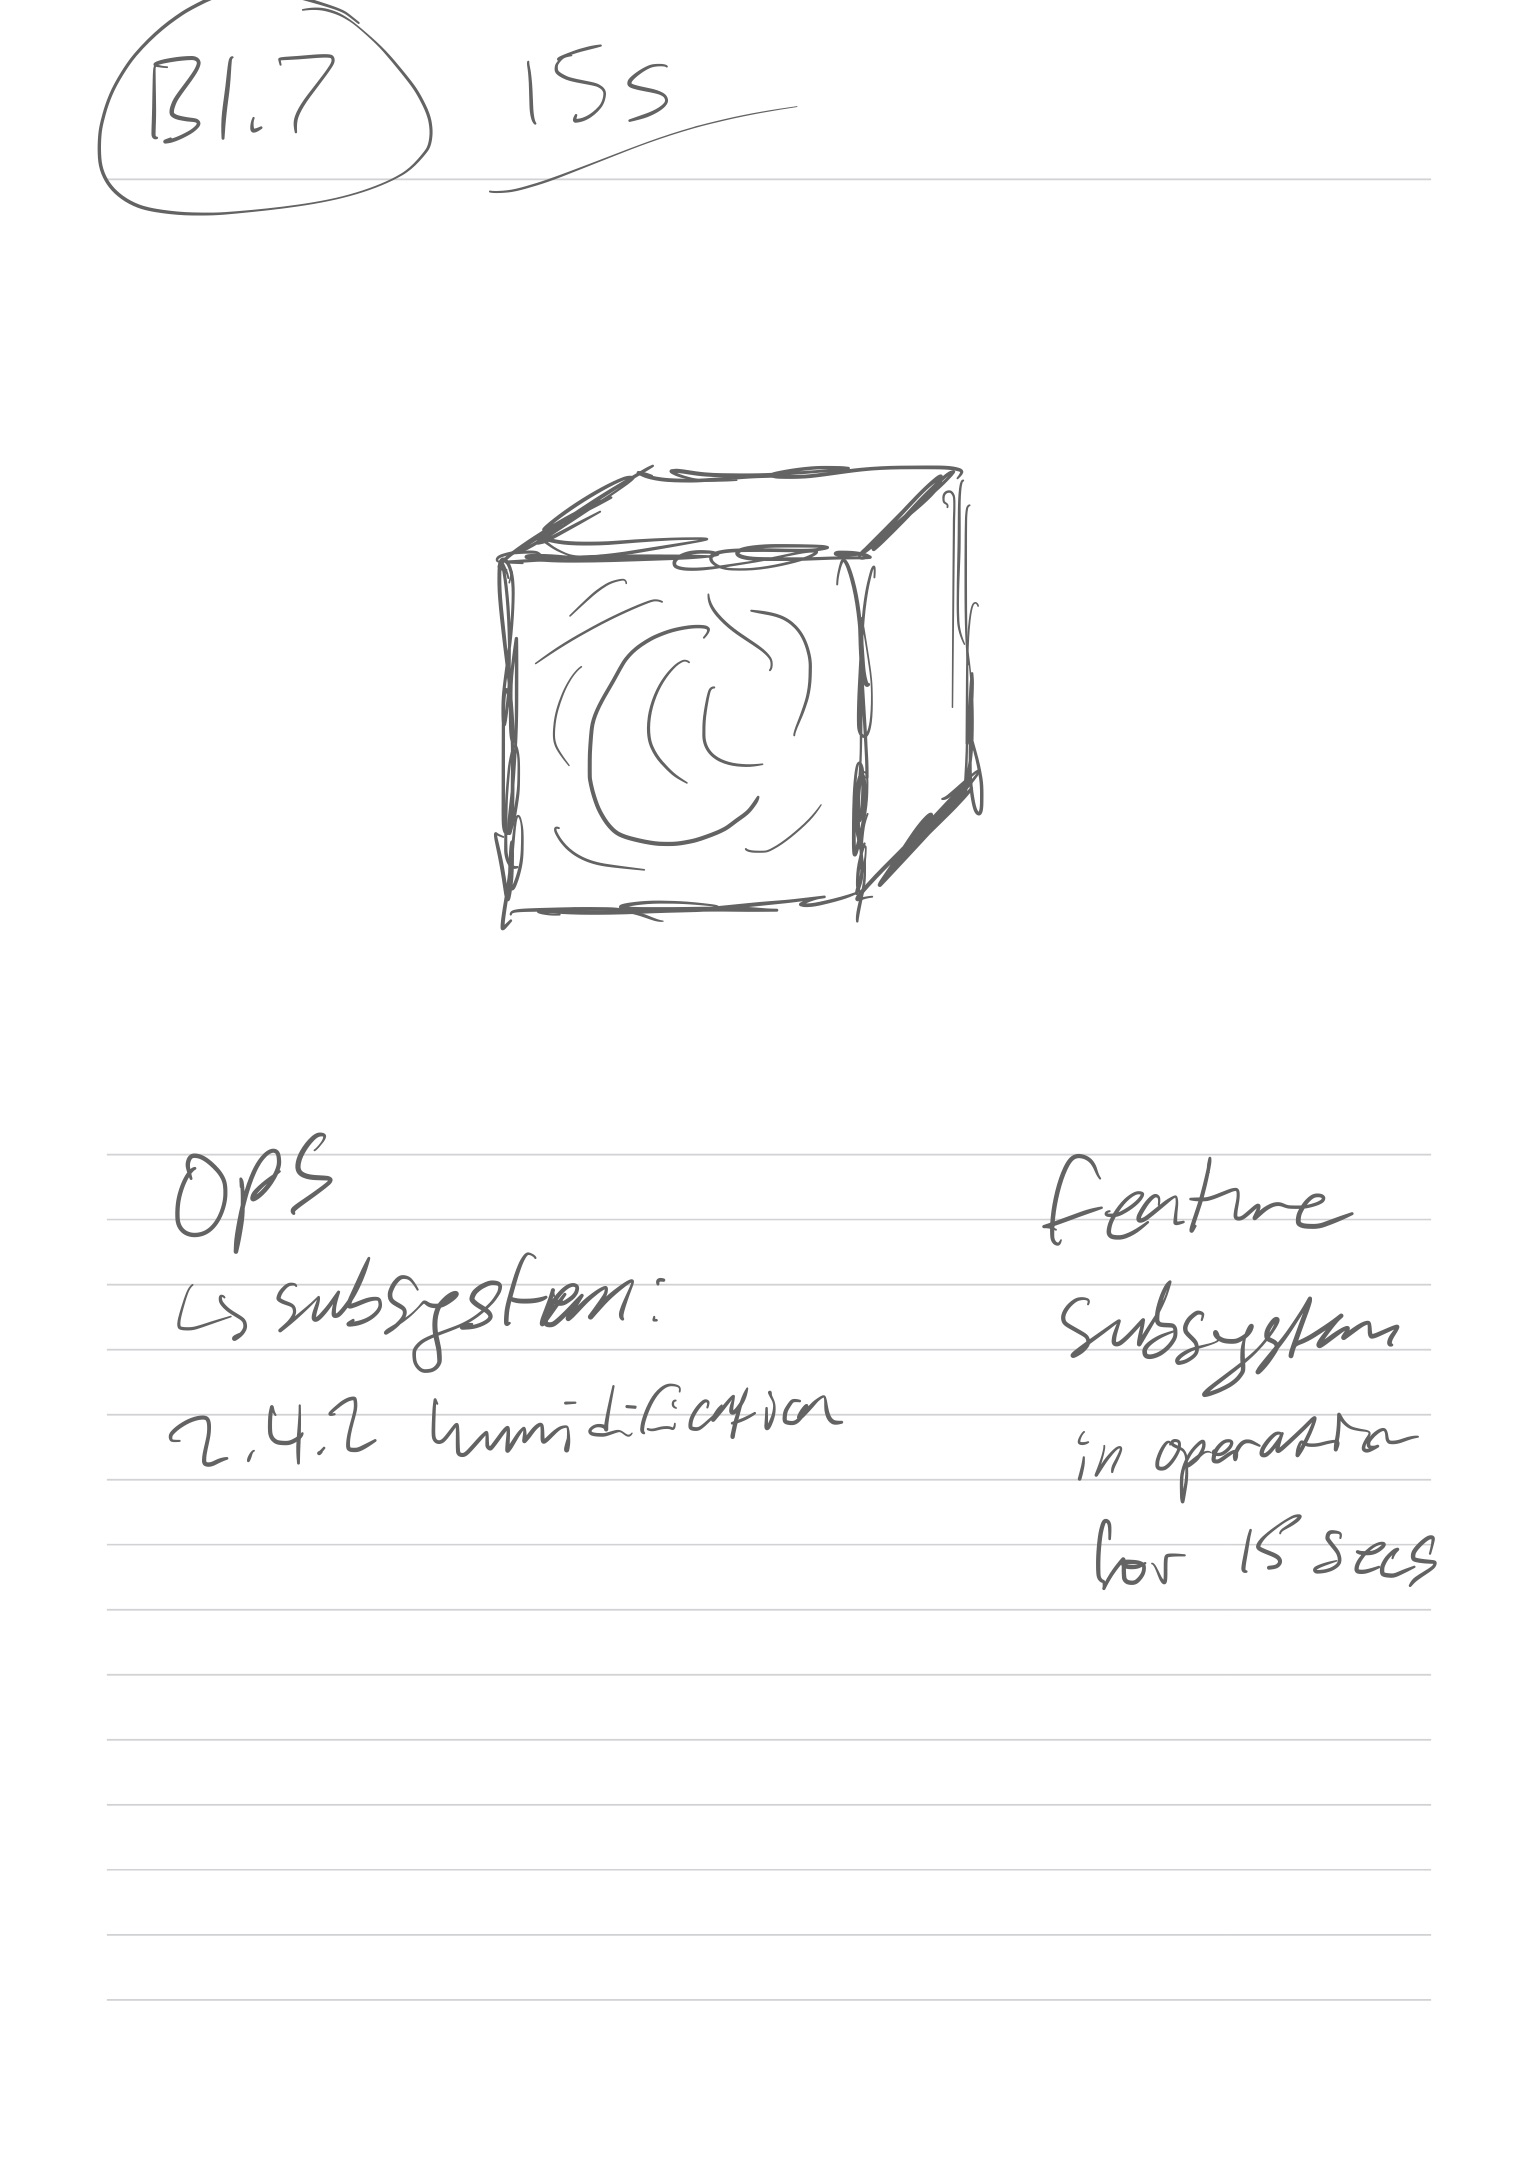 B1.7 15s
Ops
↳ subsystem:
2.4.2 humidification
Feature
subsystem
in operation
for 15 secs